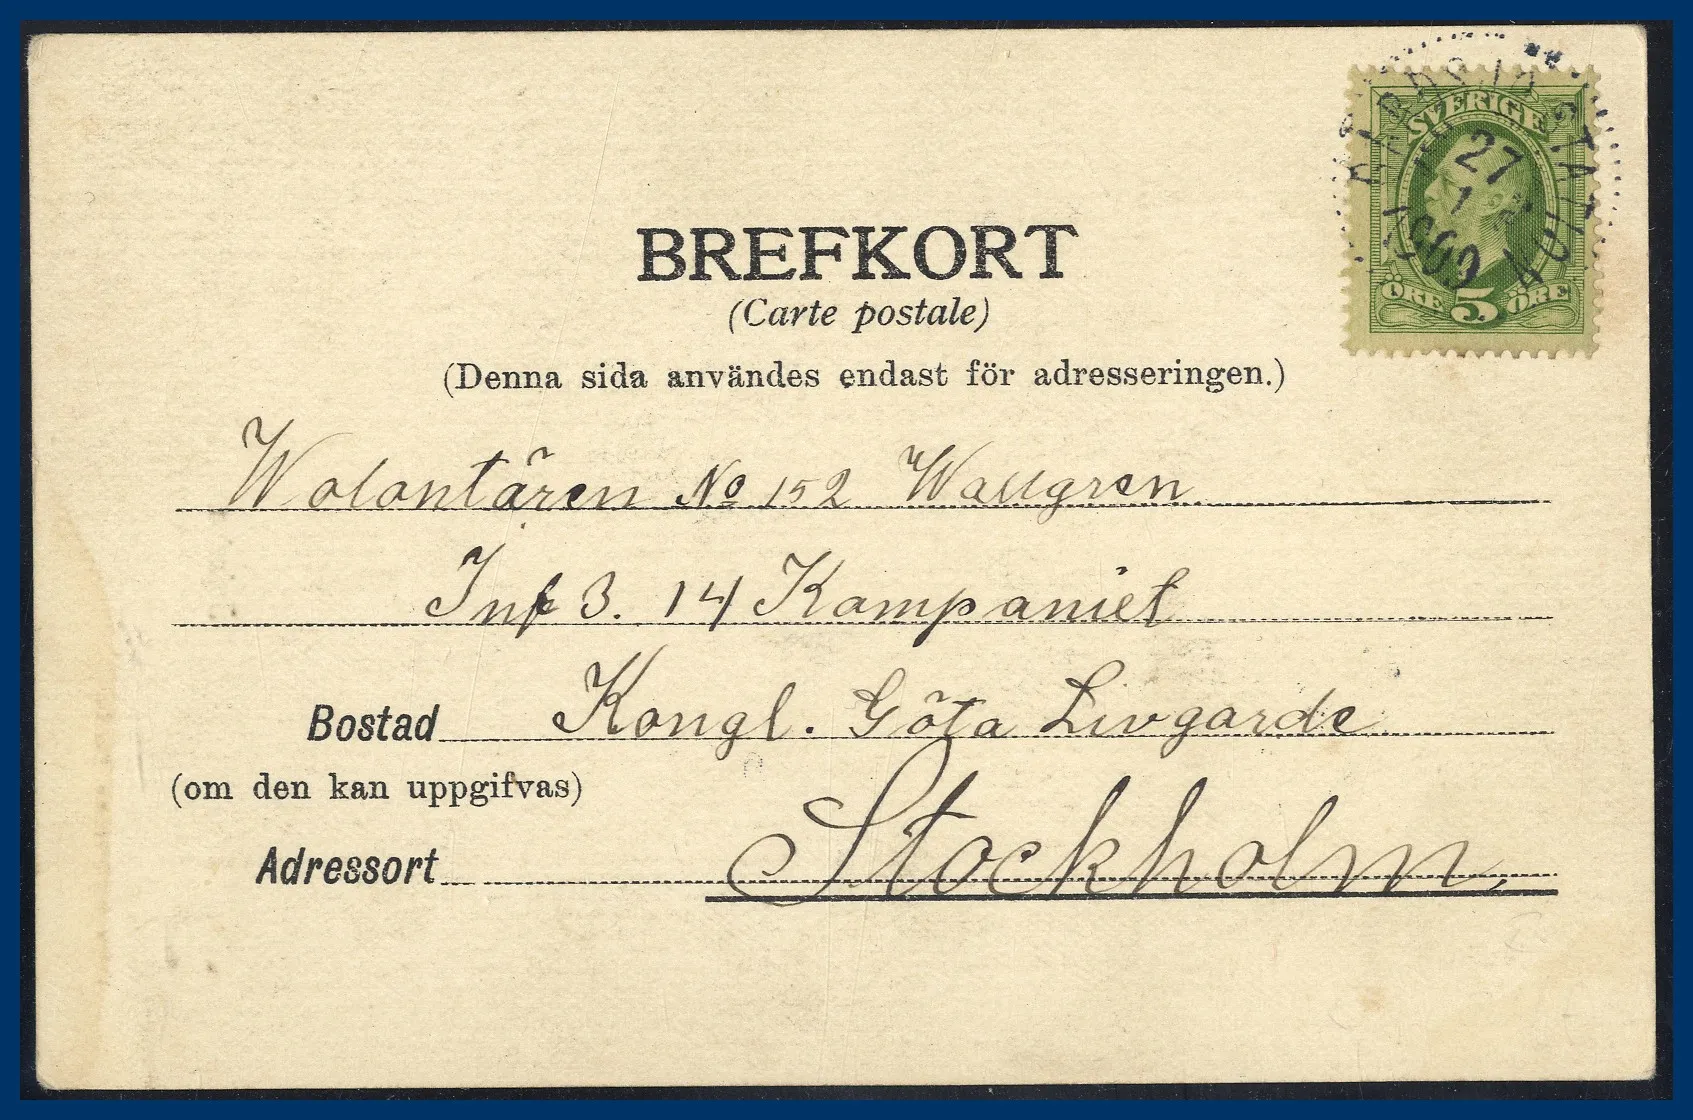 SVERIGE
27
1
1909
ÖRE 5 ÖRE
BREFKORT
(Carte postale)
(Denna sida användes endast för adresseringen.)
Wolontären No 152 Wallgren
Inf 3. 14 Kompaniet
Bostad Kongl. Göta Livgarde
(om den kan uppgifvas)
Adressort Stockholm.